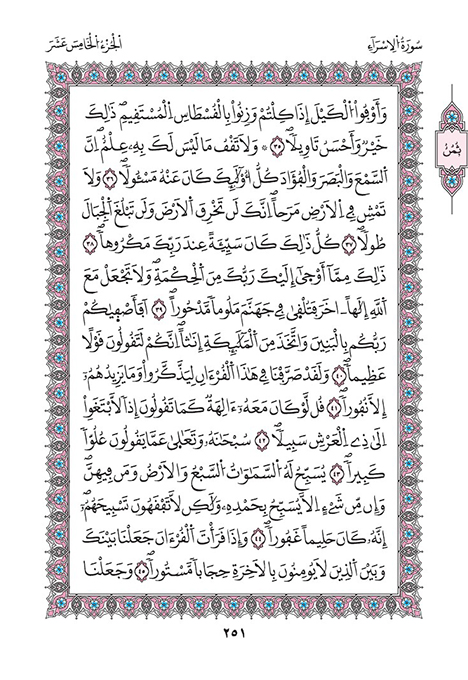 سُورَةُ الِاسْرَآءِ
الجُزْءُ الْخَامِسَ عَشَرَ
وَأَوْفُواْ اُلْكَيْلَ إِذَا كِلْتُمْ وَزِنُواْ بِالْقُسْطَاسِ اِلْمُسْتَقِيمِۖ ذَٰلِكَ
خَيْرٌ وَأَحْسَنُ تَاوِيلاًۖ ٣٥ وَلَا تَقْفُ مَا لَيْسَ لَكَ بِهِۦ عِلْمٌۖ اِنَّ
اَلسَّمْعَ وَالْبَصَرَ وَالْفُؤَادَ كُلُّ أُوْلَٰٓئِكَ كَانَ عَنْهُ مَسْـُٔولاًۖ ٣٦ وَلَا
تَمْشِ فِي اِلَارْضِ مَرَحاًۖ اِنَّكَ لَن تَخْرِقَ اَلَارْضَ وَلَن تَبْلُغَ اَلْجِبَالَ
طُولاًۖ ٣٧ كُلُّ ذَٰلِكَ كَانَ سَيِّئَةً عِندَ رَبِّكَ مَكْرُوهاًۖ ٣٨
ذَٰلِكَ مِمَّآ أَوْحَىٰٓ إِلَيْكَ رَبُّكَ مِنَ اَلْحِكْمَةِۖ وَلَا تَجْعَلْ مَعَ
اَللَّهِ إِلَٰهاً اٰخَرَ فَتُلْقَىٰ فِي جَهَنَّمَ مَلُوماً مَّدْحُوراًۖ ٣٩ اَفَأَصْفَيٰكُمْ
رَبُّكُم بِالْبَنِينَ وَاتَّخَذَ مِنَ اَلْمَلَٰٓئِكَةِ إِنَٰثاًۖ اِنَّكُمْ لَتَقُولُونَ قَوْلاً
عَظِيماًۖ ٤٠ وَلَقَدْ صَرَّفْنَا فِي هَٰذَا اَلْقُرْءَانِ لِيَذَّكَّرُواْ وَمَا يَزِيدُهُمُۥٓ
إِلَّا نُفُوراًۖ ٤١ قُل لَّوْ كَانَ مَعَهُۥٓ ءَالِهَةٌ كَمَا تَقُولُونَ إِذاً لَّابْتَغَوِاْ
اِلَىٰ ذِي اِلْعَرْشِ سَبِيلاًۖ ٤٢ سُبْحَٰنَهُۥ وَتَعَٰلَىٰ عَمَّا يَقُولُونَ عُلُوّاً
كَبِيراًۖ ٤٣ يُسَبِّحُ لَهُ اُلسَّمَٰوَٰتُ اُلسَّبْعُ وَالَارْضُ وَمَن فِيهِنَّۖ
وَإِن مِّن شَےْءٍ اِلَّا يُسَبِّحُ بِحَمْدِهِۦۖ وَلَٰكِن لَّا تَفْقَهُونَ تَسْبِيحَهُمُۥٓۖ
إِنَّهُۥ كَانَ حَلِيماً غَفُوراًۖ ٤٤ وَإِذَا قَرَأْتَ اَلْقُرْءَانَ جَعَلْنَا بَيْنَكَ
وَبَيْنَ اَلَّذِينَ لَا يُومِنُونَ بِالَاخِرَةِ حِجَاباً مَّسْتُوراًۖ ٤٥ وَجَعَلْنَا
ثُمُنُ
٢٥١